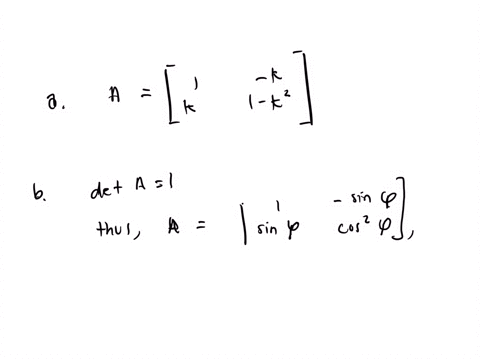 a. A = [ 1 -k
k 1-k² ]
b. det A = 1
thus, A = [ 1 - sin φ
sin φ cos² φ ],